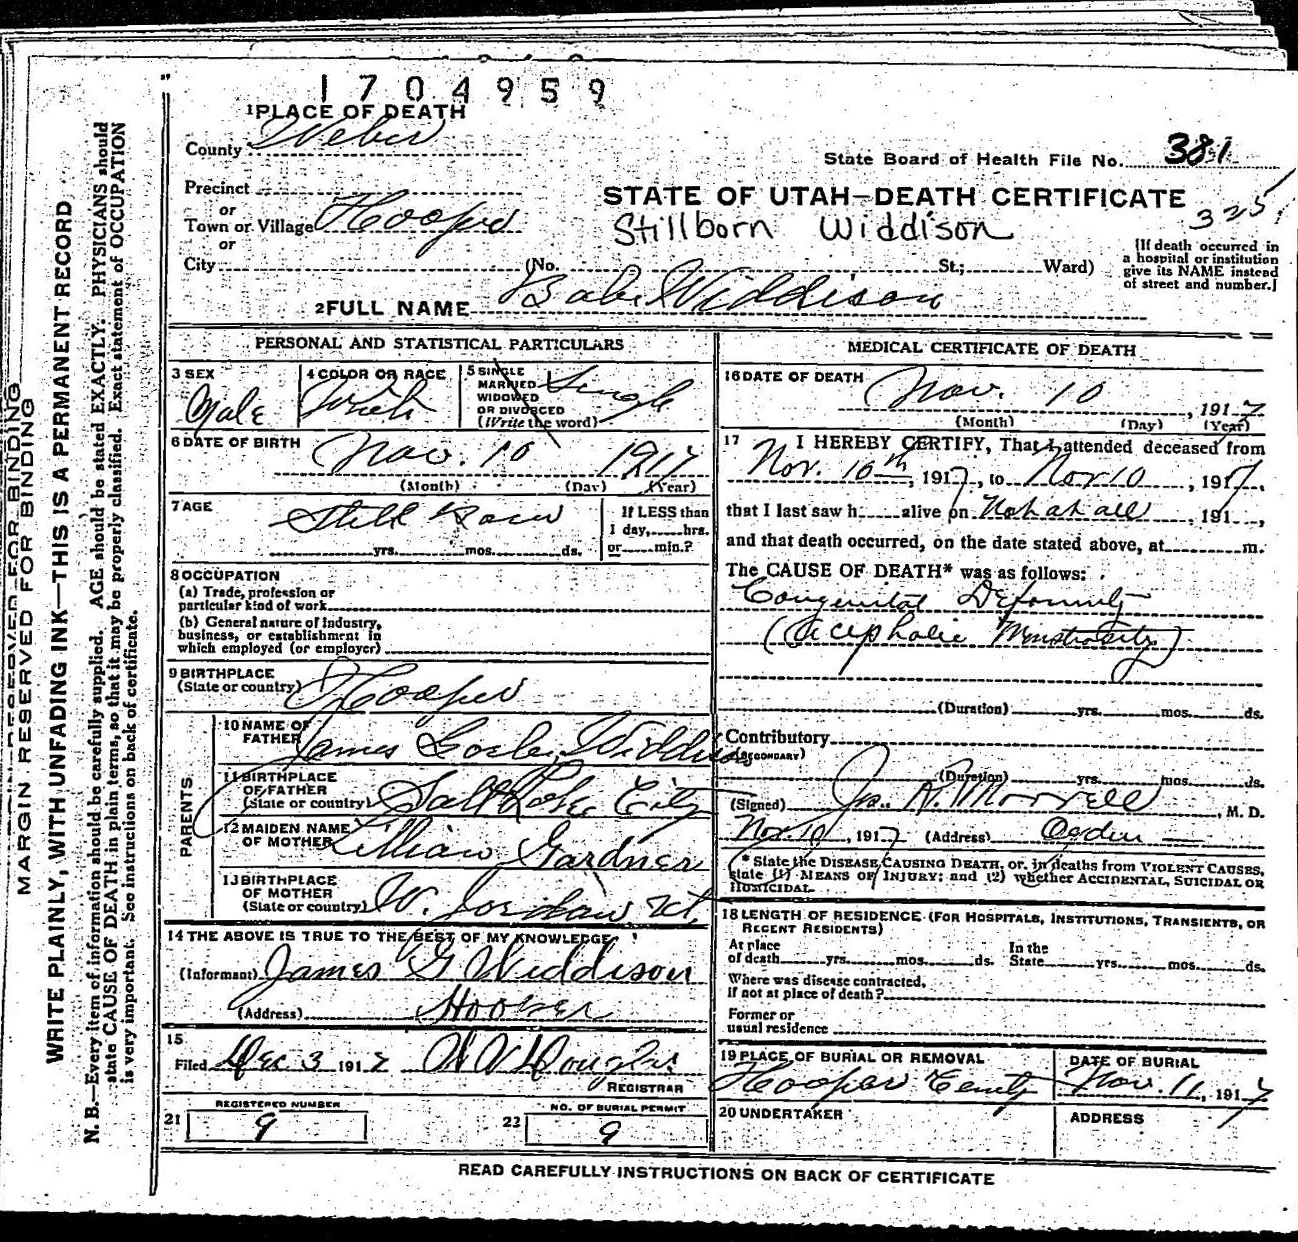 1704959
1 PLACE OF DEATH
County Weber
State Board of Health File No. 381
Precinct
STATE OF UTAH—DEATH CERTIFICATE
325
or
Town or Village Hooper
Stillborn Widdison
or
City (No. St.; Ward)
[If death occurred in
a hospital or institution
give its NAME instead
of street and number.]
2 FULL NAME Babe Widdison
PERSONAL AND STATISTICAL PARTICULARS
3 SEX
Male
4 COLOR OR RACE
White
5 SINGLE
MARRIED
WIDOWED
OR DIVORCED
(Write the word)
Single
6 DATE OF BIRTH
Nov. 10 1917
(Month) (Day) (Year)
7 AGE
Still Born
yrs. mos. ds.
If LESS than
1 day, hrs.
or min.?
8 OCCUPATION
(a) Trade, profession or
particular kind of work
(b) General nature of industry,
business, or establishment in
which employed (or employer)
9 BIRTHPLACE
(State or country) Hooper
PARENTS
10 NAME OF
FATHER James Widdison
11 BIRTHPLACE
OF FATHER
(State or country) Salt Lake City
12 MAIDEN NAME
OF MOTHER Lillian Gardner
13 BIRTHPLACE
OF MOTHER
(State or country) W. Jordan Ut.
14 THE ABOVE IS TRUE TO THE BEST OF MY KNOWLEDGE
(Informant) James G Widdison
(Address) Hooper
15
Filed Dec 3 1917 Douglas
REGISTRAR
21 REGISTERED NUMBER
9
22 NO. OF BURIAL PERMIT
9
MEDICAL CERTIFICATE OF DEATH
16 DATE OF DEATH
Nov. 10, 1917
(Month) (Day) (Year)
17 I HEREBY CERTIFY, That I attended deceased from
Nov. 10th, 1917, to Nov 10, 1917,
that I last saw h alive on Not at all, 191 ,
and that death occurred, on the date stated above, at m.
The CAUSE OF DEATH* was as follows:
Congenital Deformity
(Acephalic Monstrosity)
(Duration) yrs. mos. ds.
Contributory
(SECONDARY)
(Duration) yrs. mos. ds.
(Signed) Jos. R. Morrell, M. D.
Nov 10, 1917 (Address) Ogden
* State the DISEASE CAUSING DEATH, or, in deaths from VIOLENT CAUSES,
state (1) MEANS OF INJURY; and (2) whether ACCIDENTAL, SUICIDAL OR
HOMICIDAL.
18 LENGTH OF RESIDENCE (FOR HOSPITALS, INSTITUTIONS, TRANSIENTS, OR
RECENT RESIDENTS)
At place
of death yrs. mos. ds.
In the
State yrs. mos. ds.
Where was disease contracted,
If not at place of death?
Former or
usual residence
19 PLACE OF BURIAL OR REMOVAL
Hooper
DATE OF BURIAL
Nov. 11, 1917
20 UNDERTAKER
ADDRESS
READ CAREFULLY INSTRUCTIONS ON BACK OF CERTIFICATE
MARGIN RESERVED FOR BINDING
MARGIN RESERVED FOR BINDING
WRITE PLAINLY, WITH UNFADING INK—THIS IS A PERMANENT RECORD
N. B.—Every item of information should be carefully supplied. AGE should be stated EXACTLY. PHYSICIANS should
state CAUSE OF DEATH in plain terms, so that it may be properly classified. Exact statement of OCCUPATION
is very important. See instructions on back of certificate.